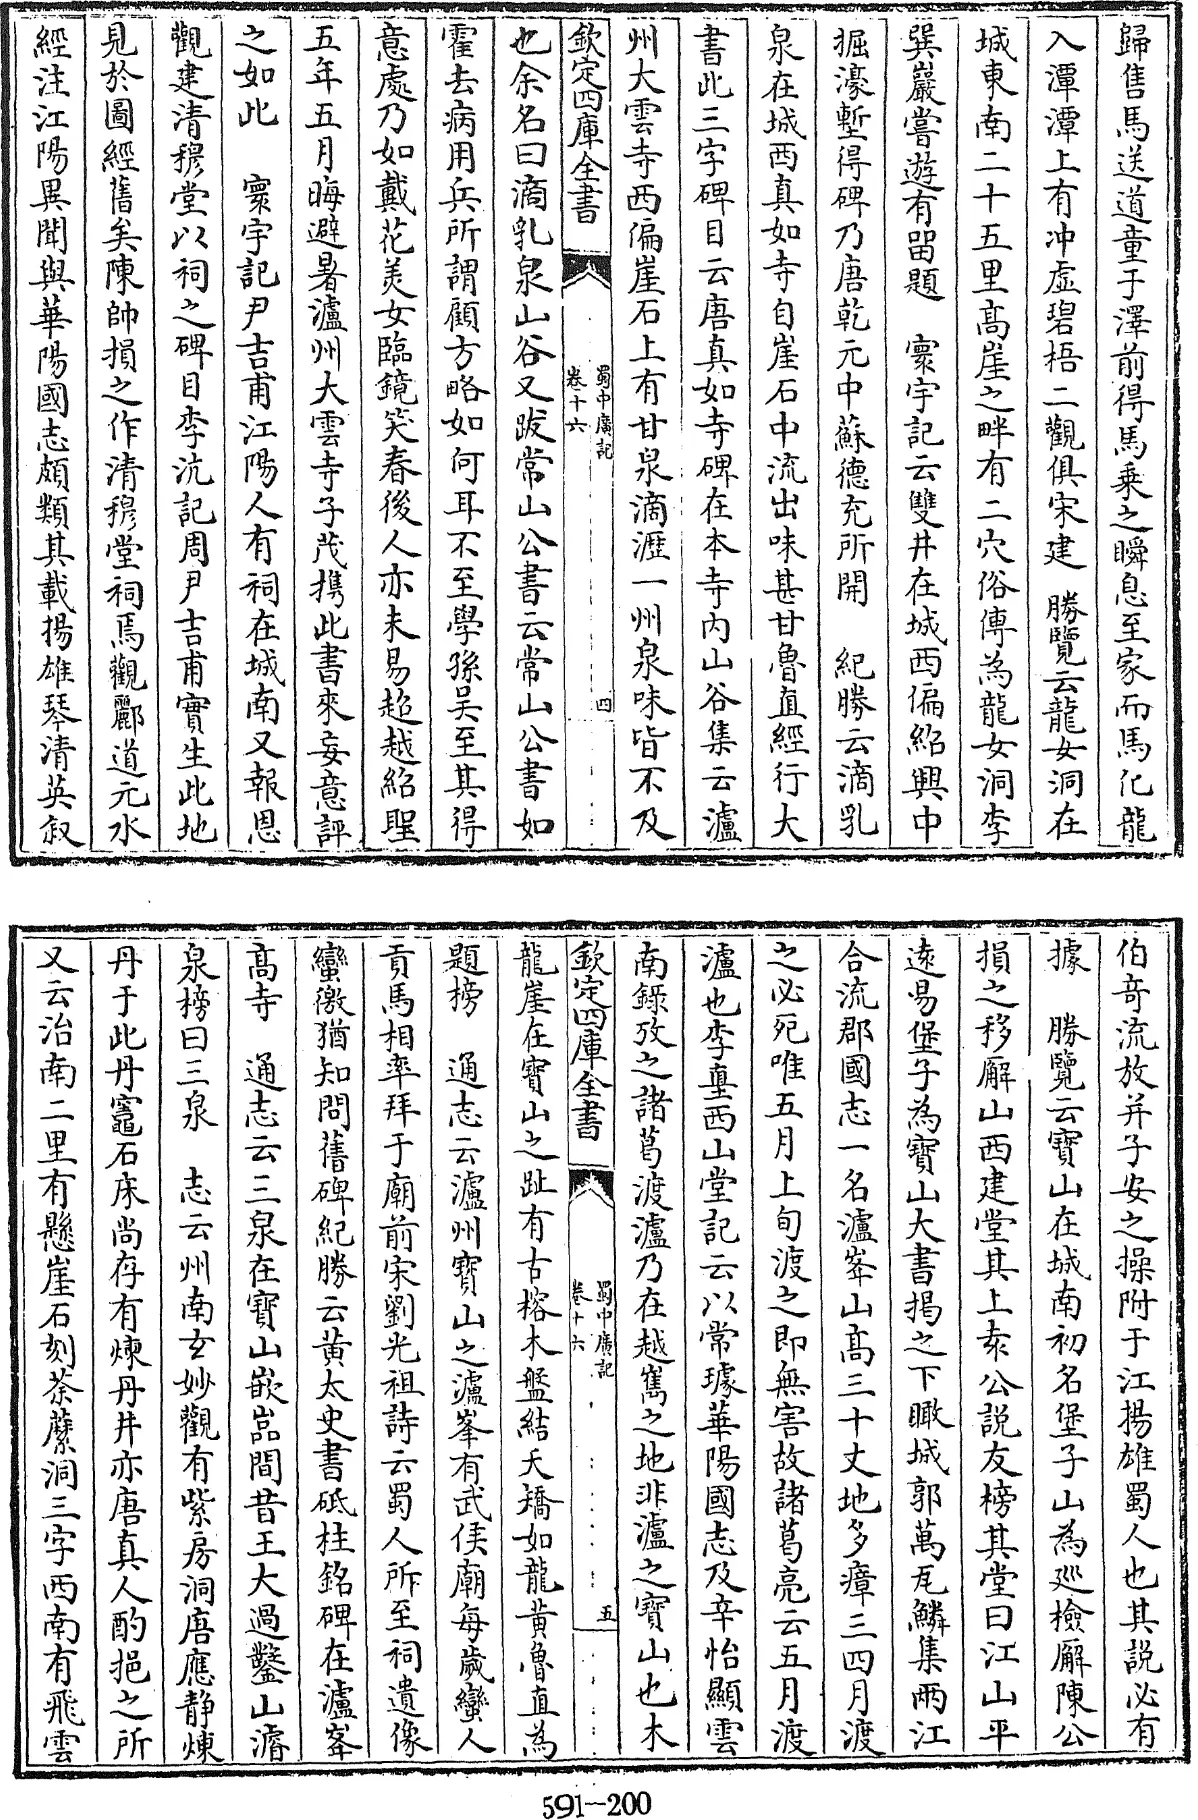 歸售馬送道童于澤前得馬乘之瞬息至家而馬化龍
入潭潭上有冲虛碧梧二觀俱宋建　勝覽云龍女洞在
城東南二十五里髙崖之畔有二穴俗傳為龍女洞李
巽巖嘗遊有留題　寰宇記云雙井在城西偏紹興中
掘濠塹得碑乃唐乾元中蘇德充所開　紀勝云滴乳
泉在城西真如寺自崖石中流出味甚甘魯直經行大
書此三字碑目云唐真如寺碑在本寺内山谷集云瀘
州大雲寺西偏崖石上有甘泉滴瀝一州泉味皆不及
欽定四庫全書
蜀中廣記
卷十六
四
也余名曰滴乳泉山谷又跋常山公書云常山公書如
霍去病用兵所謂顧方略如何耳不至學孫吳至其得
意處乃如戴花美女臨鏡笑春後人亦未易超越紹聖
五年五月晦避暑瀘州大雲寺子茂携此書來妄意評
之如此　寰宇記尹吉甫江陽人有祠在城南又報恩
觀建清穆堂以祠之碑目李沆記周尹吉甫實生此地
見於圖經舊矣陳帥損之作清穆堂祠焉觀酈道元水
經注江陽異聞與華陽國志頗類其載揚雄琴清英叙
伯竒流放并子安之操附于江揚雄蜀人也其説必有
據　勝覽云寶山在城南初名堡子山為廵檢廨陳公
損之移廨山西建堂其上袁公説友榜其堂曰江山平
逺易堡子為寶山大書揭之下瞰城郭萬瓦鱗集兩江
合流郡國志一名瀘峯山髙三十丈地多瘴三四月渡
之必死唯五月上旬渡之即無害故諸葛亮云五月渡
瀘也李𡌴西山堂記云以常璩華陽國志及辛怡顯雲
南錄攷之諸葛渡瀘乃在越嶲之地非瀘之寶山也木
欽定四庫全書
蜀中廣記
卷十六
五
龍崖在寶山之趾有古榕木盤結夭矯如龍黄魯直為
題榜　通志云瀘州寶山之瀘峯有武侯廟每歲蠻人
貢馬相率拜于廟前宋劉光祖詩云蜀人所至祠遺像
蠻徼猶知問舊碑紀勝云黄太史書砥柱銘碑在瀘峯
髙寺　通志云三泉在寶山嵌嵓間昔王大過鑿山濬
泉榜曰三泉　志云州南玄妙觀有紫房洞唐應静煉
丹于此丹竈石床尚存有煉丹井亦唐真人酌挹之所
又云治南二里有懸崖石刻荼蘼洞三字西南有飛雲
591—200